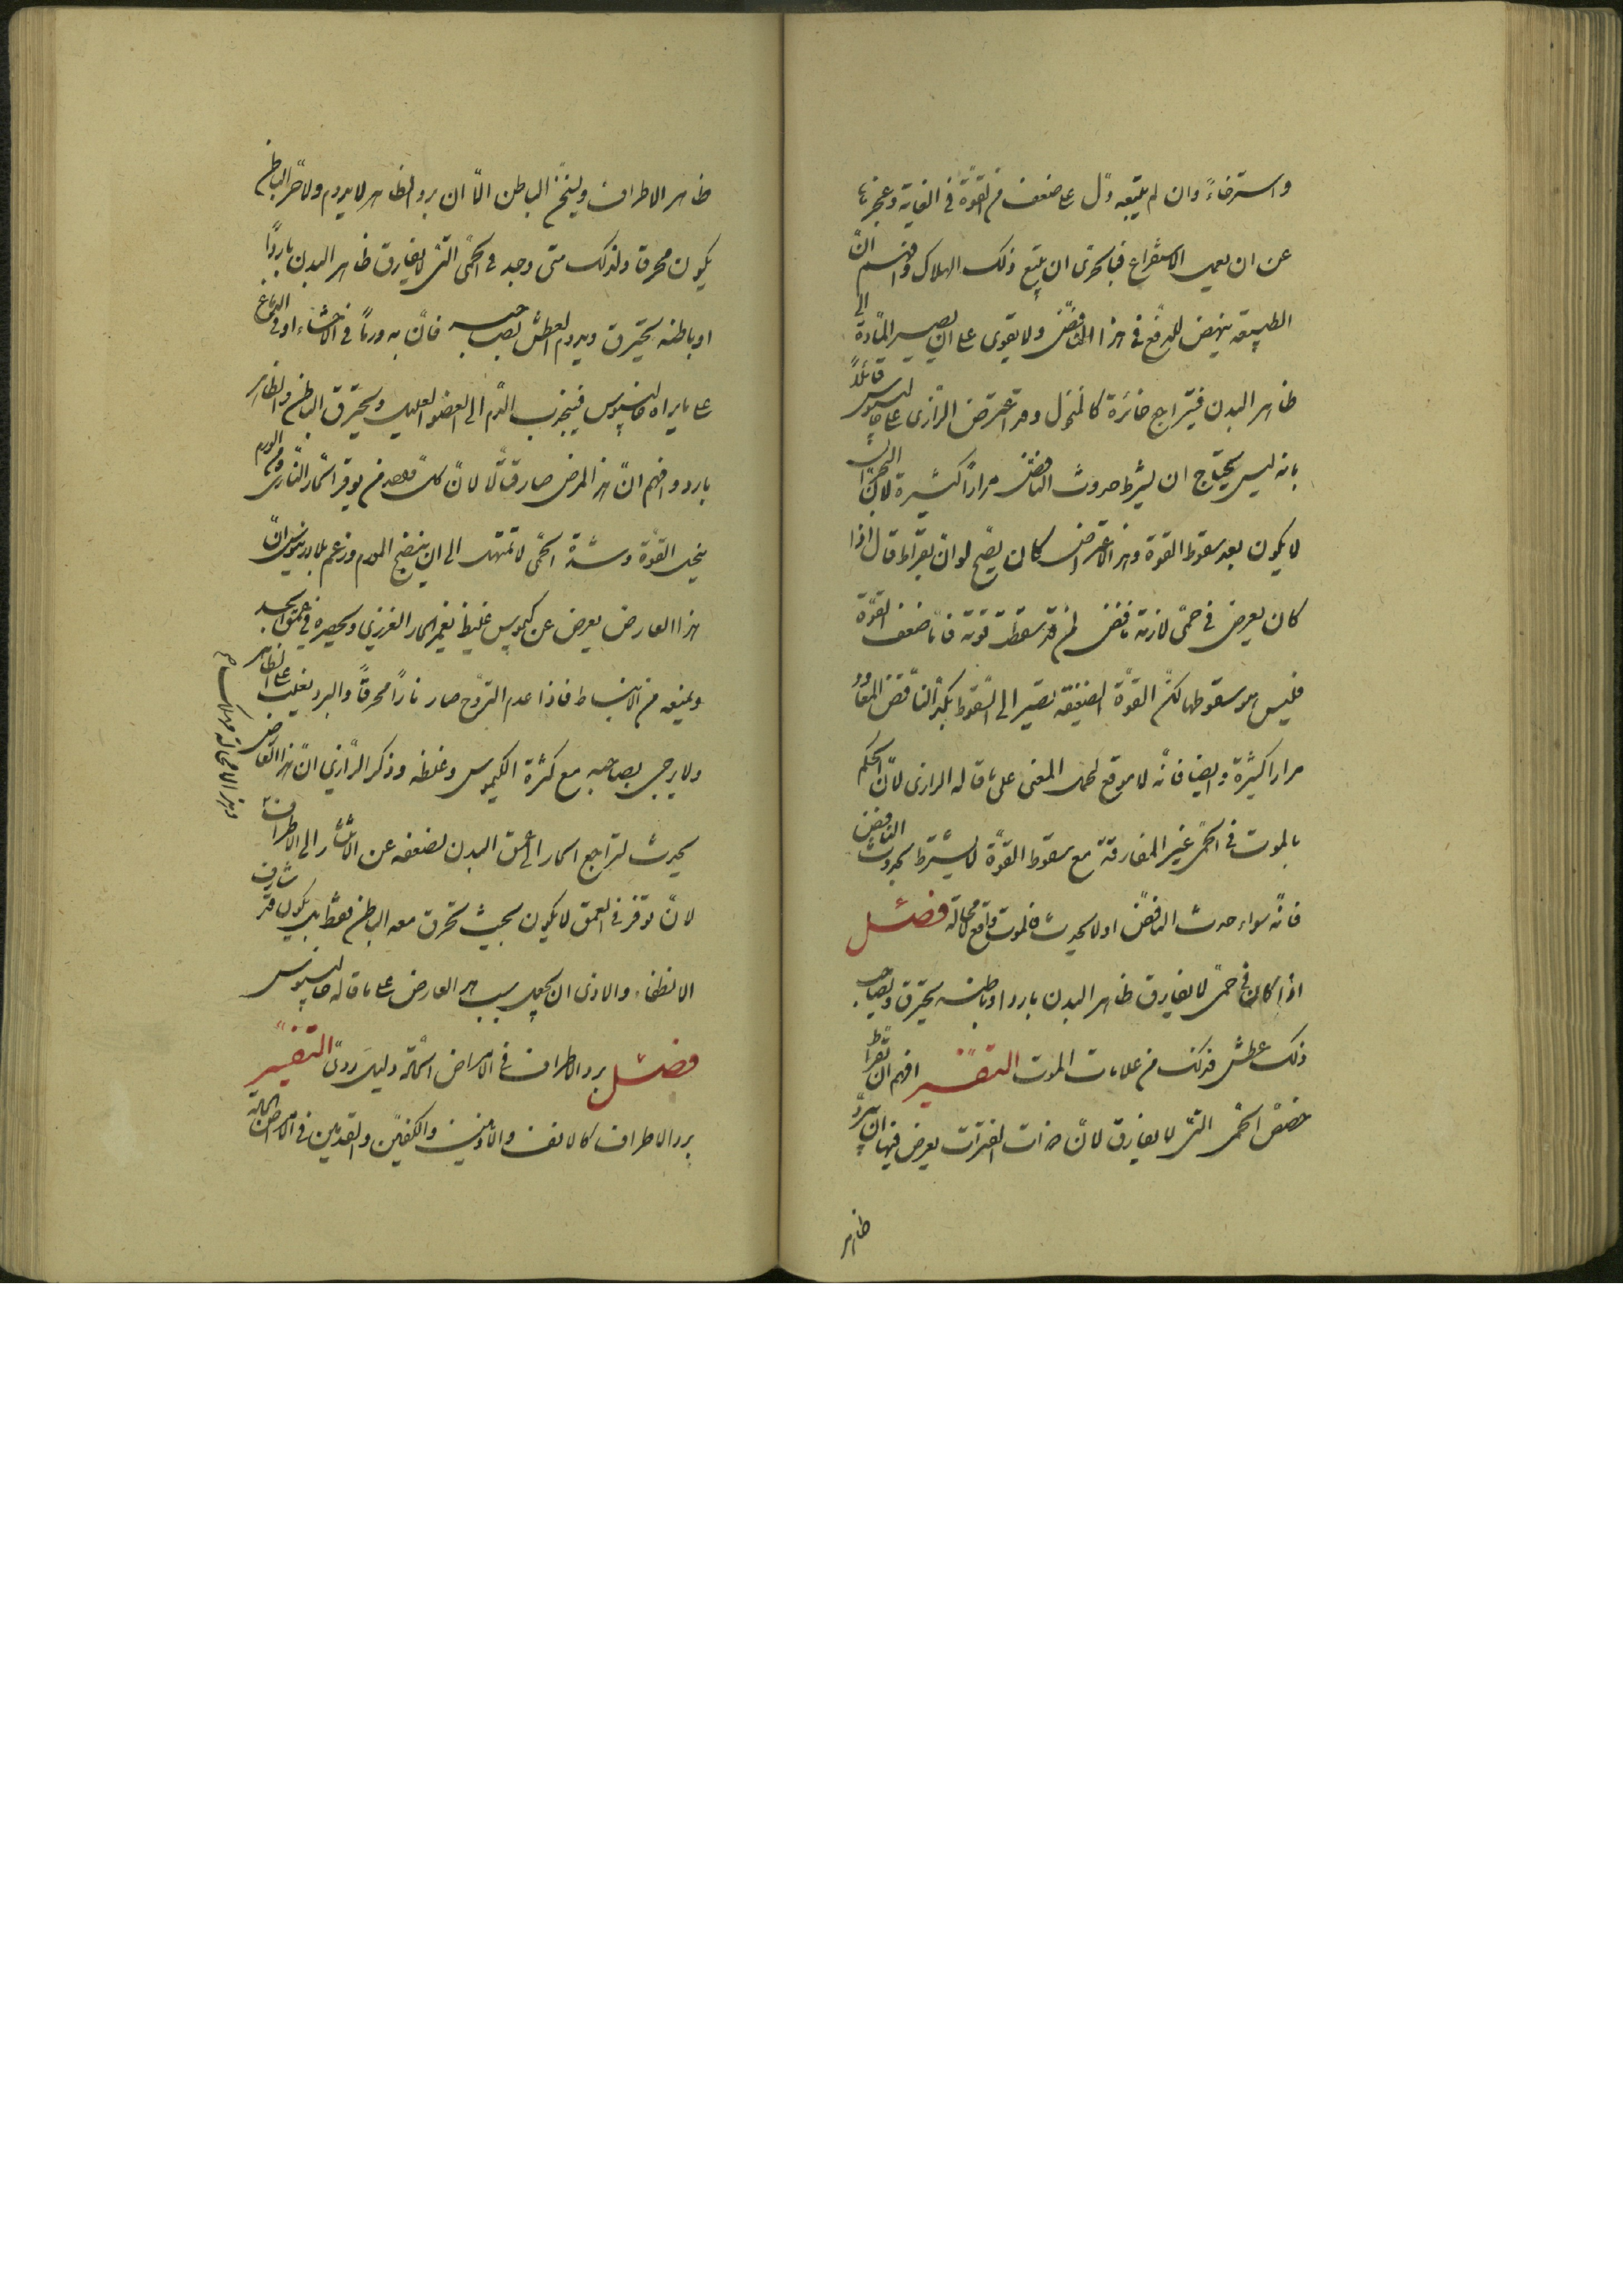 واسترخاءً وان لم يتبعه دلّ على ضعف من القوّة في الغاية وعجزها
عن ان يعمل الاستفراغ فبالحرى ان يتبع ذلك الهلاك وافهم انّ
الطبيعة ينهض للدفع في هذا النافض ولا يقوى على ان يصير المادة الى
ظاهر البدن فيتراجع خائرة وقد اعترض الرازى على جالينوس قائلاً
بانه ليس يحتاج ان يشرط حدوث النافض مراراً كثيرة لانّ البحران
لا يكون بعد سقوط القوة وهذا الاعتراض كان يصّح لو انّ بقراط قال اذا
كان يعرض في حمّى لازمة نافض لمن قد سقطت قوته فامّا ضعف القوّة
فليس هو سقوطها لكنّ القوّة الضعيفة تصير الى السّقوط بكرّ النّافض المعاود
مرارا كثيرة وايضا فانّه لا موقع لهذا المعنى على ما قاله الرازى لانّ الحكم
بالموت في الحمّى غير المفارقة مع سقوط القوّة لا يشترط بحدوث النافض
فانّه سواء حدث النافض او لا يحدث فالموت واقع لا محالة فصل
اذا كان في حمّى لا تفارق ظاهر البدن باردا وباطنه يحترق وبصاحب
ذلك عطش فذلك من علامات الموت التفسير افهم انّ بقراط
خصّص الحمّى التى لا تفارق لانّ ذات الفترات يعرض فيها ان يبرد
ظاهر
ظاهر الاطراف ويسخن الباطن الّا ان برد الظاهر لا يدوم ولا حرّ الباطن
يكون محرقا ولذلك متى وجد في الحمّى التى لا تفارق ظاهر البدن بارداً
او باطنه يحترق ويدوم العطش بصاحبه فانّ به ورماً في الاحشاء او في الدماغ
على ما يراه جالينوس فينجذب الدّم الى العضو العليل ويحترق الباطن والظاهر
بارد وافهم انّ هذا المرض صار قتّالا لانّ كلّ واحد من توقّد الحار النّارى والورم
ينحل القوّة وشدّة الحمّى لا تمهل الى ان ينضج الورم وزعم بلاديوس انّ
هذا العارض يعرض عن كيموس غليظ يغمر الحار الغريزي ويحصره في عمق الجسد
ويمنعه من الانبساط فاذا عدم التروّح صار ناراً محرقاً والبرد يغلب على الظاهر
ولا يرجى بصاحبه مع كثرة الكيموس وغلظه وذكر الرّازي انّ هذا العارض
يحدث لتراجع الحار الى عمق البدن لضعفه عن الانتشار الى الاطراف
لانّ توفّر في العمق لا يكون بحيث تحرق معه الباطن فقط بل يكون قد شارف
الانطفاء والاولى ان يجعل سبب هذا العارض على ما قاله جالينوس
فصل برد الاطراف في الامراض الحادّة دليل ردىّ التفسير
برد الاطراف كالانف والاذنين والكفّين والقدمين في الامراض الحادّة